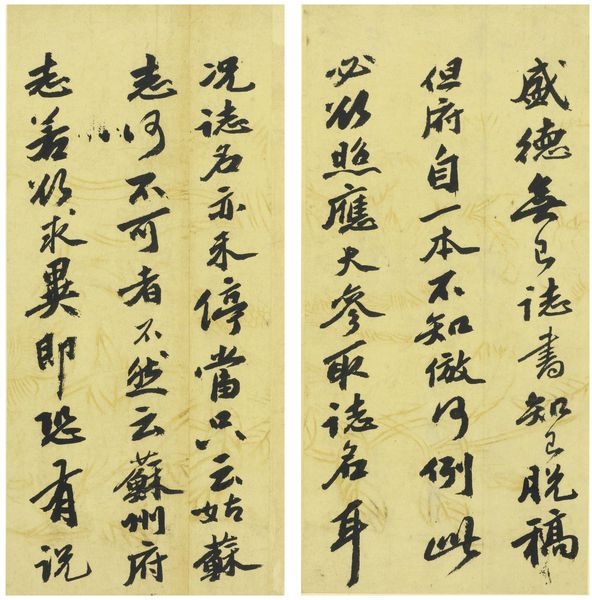 盛德無已誌書知已脱稿
但府自一本不知倣何例此
必欲照應大參取誌名耳
况誌名亦未停當只云姑蘇
志何不可者不然云蘇州府
志若欲求異即恐有説